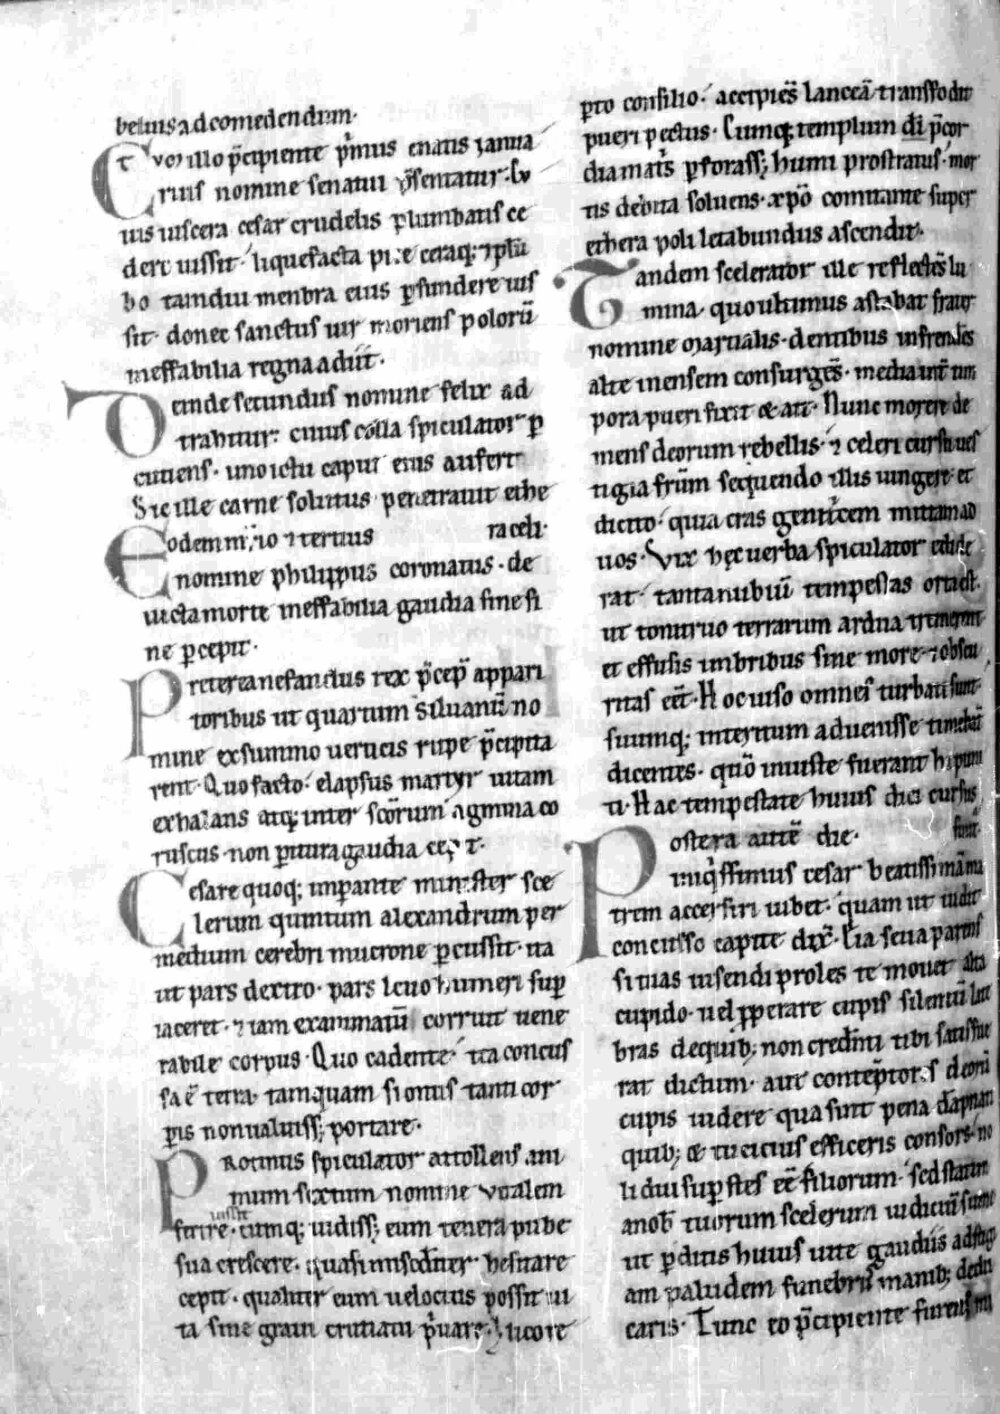 beluis ad comedendum·
Tyoꝝ illo p̄cipiente p̾mus enatis ianua
rius nomine senatui p̄sentatur· Cu
ius uiscera cesar crudelis plumbatis ce
dere iussit· liquefacta pice ceraq; ⁊ plū
bo tamdiu menbra eius ꝑfundere ius
sit· donec sanctus uir moriens polorū
ineffabilia regna adiit·
Deinde secundus nomine felix ad
trahitur· cuius colla spiculator ꝑ
cutiens· uno ictu caput eius aufert
Sic ille carne solutus penetrauit ethe
Eodem ⁊ tertius ra celi·
nomine philippus coronatus· de
uicta morte ineffabilia gaudia sine fi
ne ꝑcepit·
Preterea nefandus rex p̄cep̄ appari
toribus ut quartum siluanū no
mine exsummo uerticis rupe p̄cipita
rent· Quo facto· elapsus martyr uitam
exhalans atq; inter sc̄orum agmina co
ruscus· non ꝑitura gaudia cepit·
Cesare quoq; imꝑante minister sce
lerum quintum alexandrum per
medium cerebri mucrone ꝑcussit· ita
ut pars dextro· pars leuo humeri suꝑ
iaceret· ⁊ iam exanimatū corruit uene
rabile corpus· Quo cadente· ita concus
sa ē terra· tamquam si onus tanti cor
ꝑis non ualuiss; portare·
Protinus spiculator attollens ani
mum sextum nomine uitalem
iussit
ferire· cumq; uidiss; eum tenera pube
sua crescere· quasi miseder̄ hesitare
cepit· qualiter eum uelocius possit ui
ta sine graui cruciatu p̾uare· licore
ꝑto consilio· accipiēs lanceā transfodit
pueri pectus· Cumq; templum di p̄cor
dia mat̾is ꝑforass; humi prostratus· mor
tis debita soluens· xp̄o comitante super
ethera poli letabundus ascendit·
Tandem scelerator ille reflectēs lu
mina· quo ultimus astabat frater
nomine martialis· dentibus infrendēs
alte in ensem consurgēs· media int̄ tim
pora pueri fixit & ait· Nunc morere de
mens deorum rebellis· ⁊ celeri cursu ues
tigia fr̄um sequendo illis iungere et
dicito· quia cras genit̾cem mittam ad
uos· Vix hęc uerba spiculator edide
rat· tanta nubiū tempestas orta est·
ut tonitruo terrarum ardua tremerent
et effusis imbribus sine more ⁊ obscu
ritas eēt· Hoc uiso omnes turbati sunt·
suumq; interitum aduenisse timebāt
dicentes· quō iniuste fuerant hi puni
ti· Hac tempestate huius diei cursus
Postera autē die· finit̾·
iniq̾ssimus cesar beatissimā ma
trem accersiri iubet· quam ut uidit
concusso capite dix̄· Eia seua parens
si tuas uisendi proles te mouet alta
cupido· uel ꝓperare cupis silentū late
bras de quib; non credim̾ tibi satis fue
rat dictum· aut contēptores deorū
cupis uidere qua sint pena dāpnati
quib; & tu cicius efficeris consors· no
li diu suꝑstes eē filiorum· sed statim
a nob̄ tuorum scelerum iudiciū sume
ut ꝑditis huius uite gaudiis ad stigi
am paludem funebris manib; dedu
caris· Tunc eo p̄cipiente furens mi